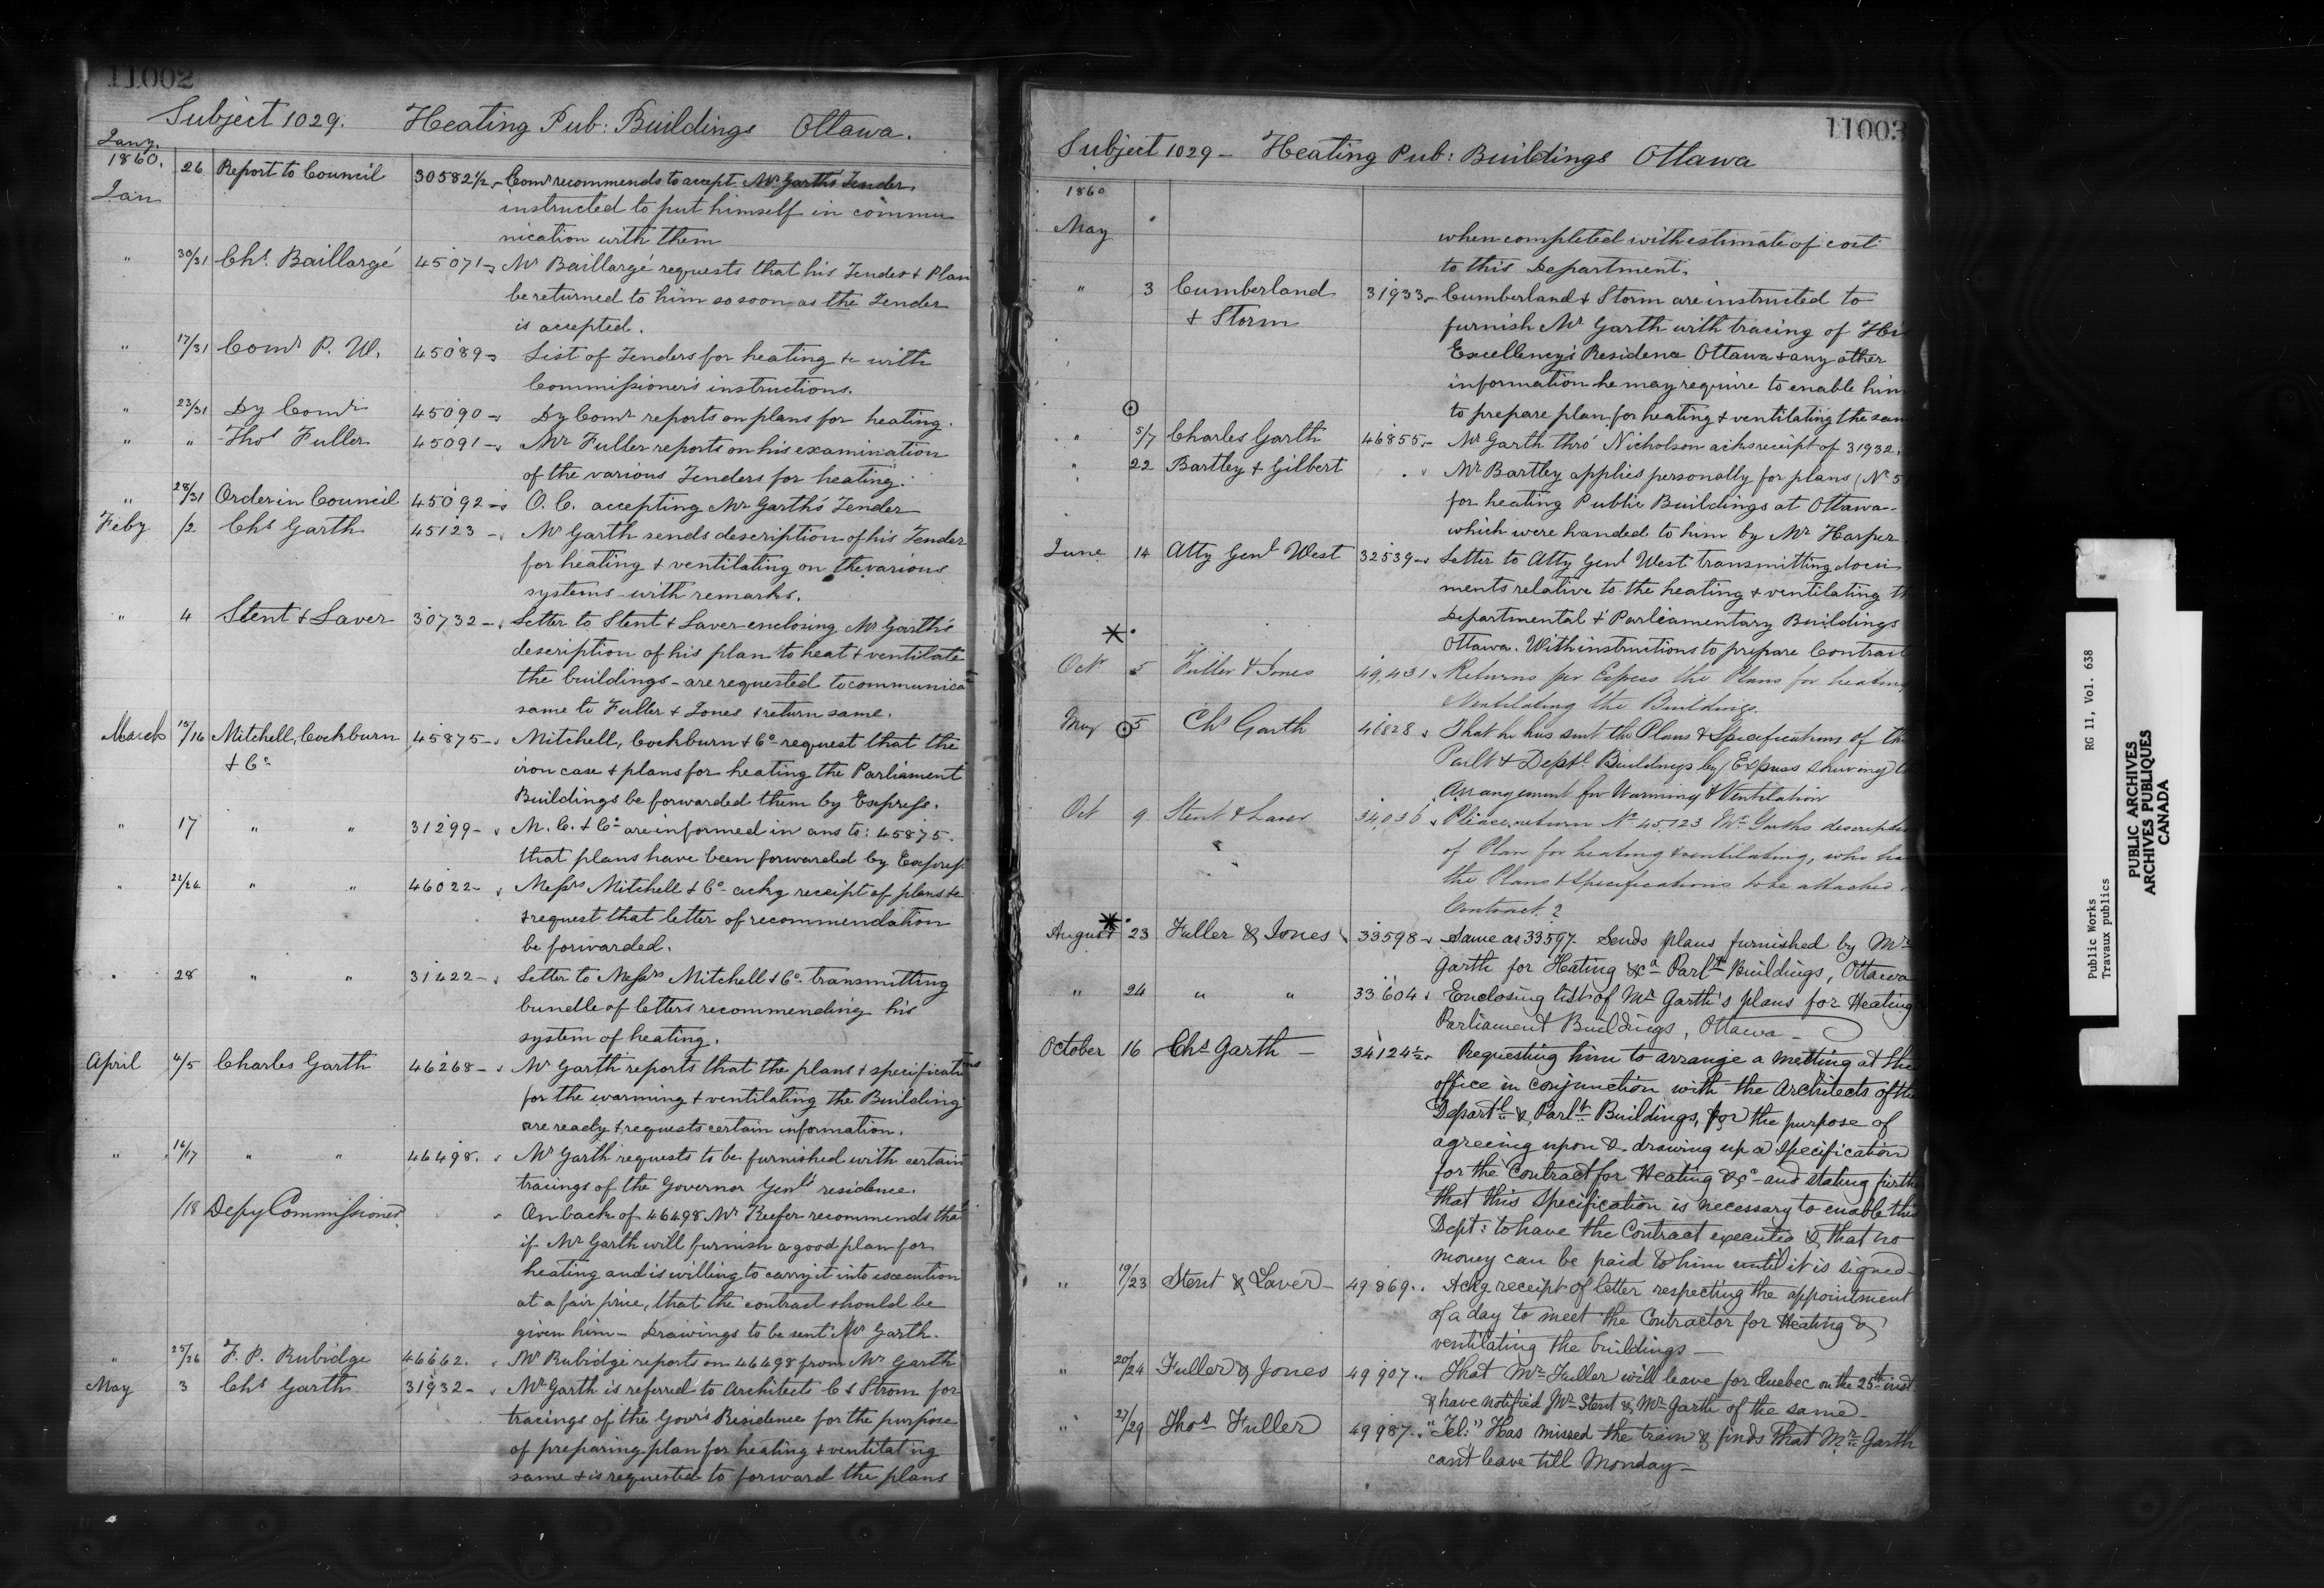 11002
Subject 1029. Heating Pub: Buildings Ottawa.
Jany.
1860. 26 Report to Council 30582½ - Comr recommends to accept Mr Garth's Tender.
Jan instructed to put himself in commu
nication with them
" 30/31 Chs. Baillargé 45071 - Mr Baillargé requests that his Tender & Plan
be returned to him so soon as the Tender
is accepted.
" 17/31 Comr P. W. 45089 - List of Tenders for heating &c with
Commissioner's instructions.
" 23/31 Dy Comr 45090 - Dy Comr reports on plans for heating.
" " Thos Fuller 45091 - Mr Fuller reports on his examination
of the various Tenders for heating.
" 28/31 Order in Council 45092 - O. C. accepting Mr Garth's Tender
Feby /2 Chs Garth 45123 - Mr Garth sends description of his Tender
for heating & ventilating on the various
systems - with remarks.
" 4 Stent & Laver 30732 - Letter to Stent & Laver enclosing Mr Garth's
description of his plan to heat & ventilate
the buildings - are requested to communicate
same to Fuller & Jones & return same.
March 15/16 Mitchell, Cockburn 45875 - Mitchell, Cockburn & Co request that the
& Co iron case & plans for heating the Parliament
Buildings be forwarded them by Express.
" 17 " " 31299 - M. C. & Co are informed in ans to: 45875.
that plans have been forwarded by Express.
" 22/26 " " 46022 - Messrs Mitchell & Co ackg receipt of plans &c
& request that letter of recommendation
be forwarded.
" 28 " " 31422 - Letter to Messrs Mitchell & Co transmitting
bundle of letters recommending his
system of heating.
April 4/5 Charles Garth 46268 - Mr Garth reports that the plans & specifications
for the warming & ventilating the Building
are ready & requests certain information.
" 16/17 " " 46498. Mr Garth requests to be furnished with certain
tracings of the Governor Genl's residence.
/18 Depy Commissioner On back of 46498 Mr Keefer recommends that
if Mr Garth will furnish a good plan for
heating and is willing to carry it into execution
at a fair price, that the contract should be
given him - Drawings to be sent Mr Garth.
" 25/26 F. P. Rubidge 46662. Mr Rubidge reports on 46498 from Mr Garth
May 3 Chs Garth 31932 - Mr Garth is referred to Architects C & Strom for
tracings of the Govr's Residence for the purpose
of preparing plan for heating & ventilating
same & is requested to forward the plans
11003
Subject 1029 - Heating Pub: Buildings Ottawa
1860
May when completed with estimate of cost
to this Department.
" 3 Cumberland 31933 - Cumberland & Storm are instructed to
& Storm furnish Mr Garth with tracing of His
Excellency's Residence Ottawa & any other
information he may require to enable him
to prepare plan for heating & ventilating the same
" 5/7 Charles Garth 46855 - Mr Garth thro' Nicholson acks receipt of 31932.
" 22 Bartley & Gilbert Mr Bartley applies personally for plans (No 5)
for heating Public Buildings at Ottawa -
which were handed to him by Mr Harper.
June 14 Atty Genl West 32539 - Letter to Atty Genl West transmitting docu
ments relative to the heating & ventilating the
Departmental & Parliamentary Buildings
Ottawa. With instructions to prepare Contract
Oct 5 Fuller & Jones 49,431. Returns per Express the Plans for heating
Ventilating the Buildings.
May 5 Chs Garth 46828 That he has sent the Plans & Specifications of the
Parlt & Deptl Buildings by Express shewing the
Arrangement for Warming & Ventilation
Oct 9 Stent & Laver 34,036 Please return No 45,123 Mr Garths description
of Plan for heating & ventilating, who has
the Plans & Specifications to be attached
Contract?
August 23 Fuller & Jones 33598 - Same as 33597. Sends plans furnished by Mr
Garth for Heating &ca Parlt Buildings, Ottawa
" 24 " " 33604. Enclosing list of Mr Garth's plans for Heating
Parliament Buildings, Ottawa -
October 16 Chs Garth - 34124½ - Requesting him to arrange a meeting at the
office in conjunction with the Architects of the
Departl & Parlt Buildings, for the purpose of
agreeing upon & drawing up a Specification
for the Contract for Heating &c - and stating further
that this Specification is necessary to enable this
Dept: to have the Contract executed & that no
money can be paid to him until it is signed -
" 19/23 Stent & Laver - 49869. Ackg receipt of letter respecting the appointment
of a day to meet the Contractor for Heating &
ventilating the buildings -
" 20/24 Fuller & Jones 49907. That Mr Fuller will leave for Quebec on the 25th inst
& have notified Mr Stent & Mr Garth of the same -
" 27/29 Thos Fuller 49987. "Tel:" Has missed the train & finds that Mr Garth
cant leave till Monday -
Public Works RG 11, Vol. 638
Travaux publics
PUBLIC ARCHIVES
ARCHIVES PUBLIQUES
CANADA